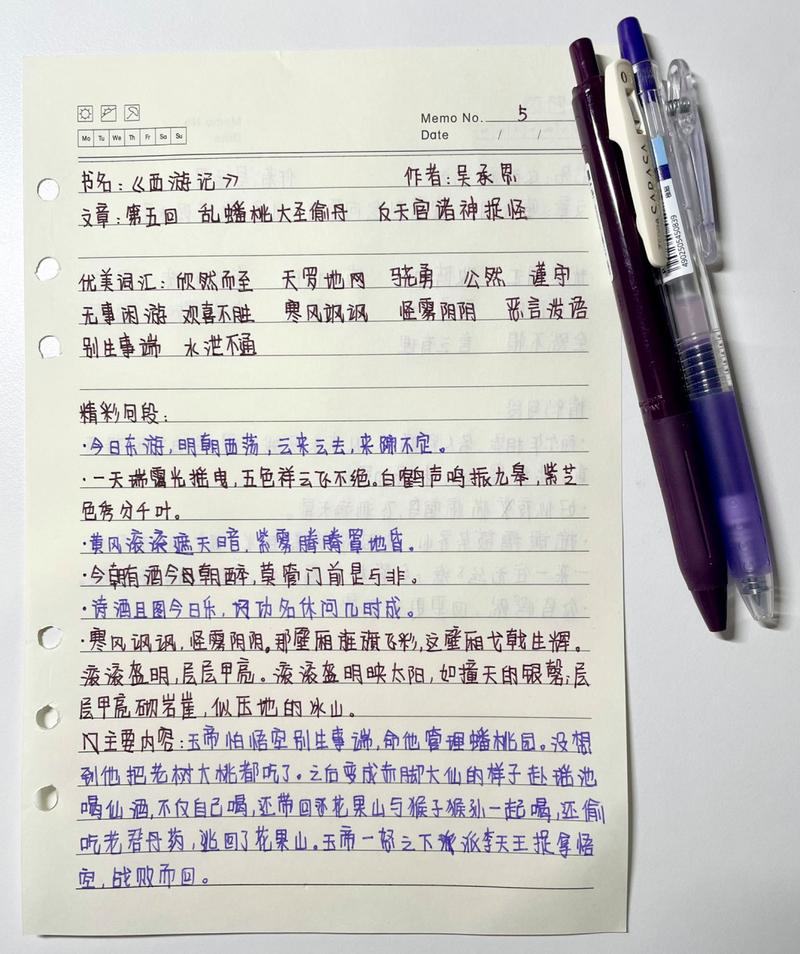 Memo No. 5
Mo Tu We Th Fr Sa Su
Date / /
书名:《西游记》 作者:吴承恩
文章:第五回 乱蟠桃大圣偷丹 反天宫诸神捉怪
优美词汇:欣然而至 天罗地网 骁勇 公然 谨守
无事闲游 欢喜不胜 寒风飒飒 怪雾阴阴 恶言泼语
别生事端 水泄不通
精彩句段:
·今日东游,明朝西荡,云来云去,来踪不定。
·一天瑞霭光摇曳,五色祥云飞不绝。白鹤声鸣振九皋,紫芝
色秀分千叶。
·黄风滚滚遮天暗,紫雾腾腾罩地昏。
·今朝有酒今朝醉,莫管门前是与非。
·诗酒且图今日乐,功名休问几时成。
·寒风飒飒,怪雾阴阴。那壁厢旌旗飞彩,这壁厢戈戟生辉。
滚滚盔明,层层甲亮。滚滚盔明映太阳,如撞天的银磬;层
层甲亮砌岩崖,似压地的冰山。
主要内容:玉帝怕悟空别生事端,命他管理蟠桃园。没想
到他把老树大桃都吃了。之后变成赤脚大仙的样子赴瑶池
喝仙酒,不仅自己喝,还带回花果山与猴子猴孙一起喝,还偷
吃老君丹药,逃回了花果山。玉帝一怒之下派李天王捉拿悟
空,战败而回。
SARASA
0
4902505450839